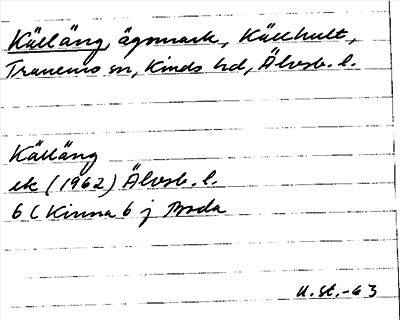 Källäng, ägomark, Källhult,
Tranemo sn, Kinds hd, Älvsb. l.
Källäng
ek (1962) Älvsb. l.
6 C Kinna 6 j Boda
U.st.-63